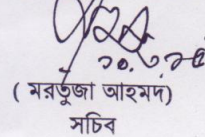 ( মরতুজা আহমদ)
সচিব